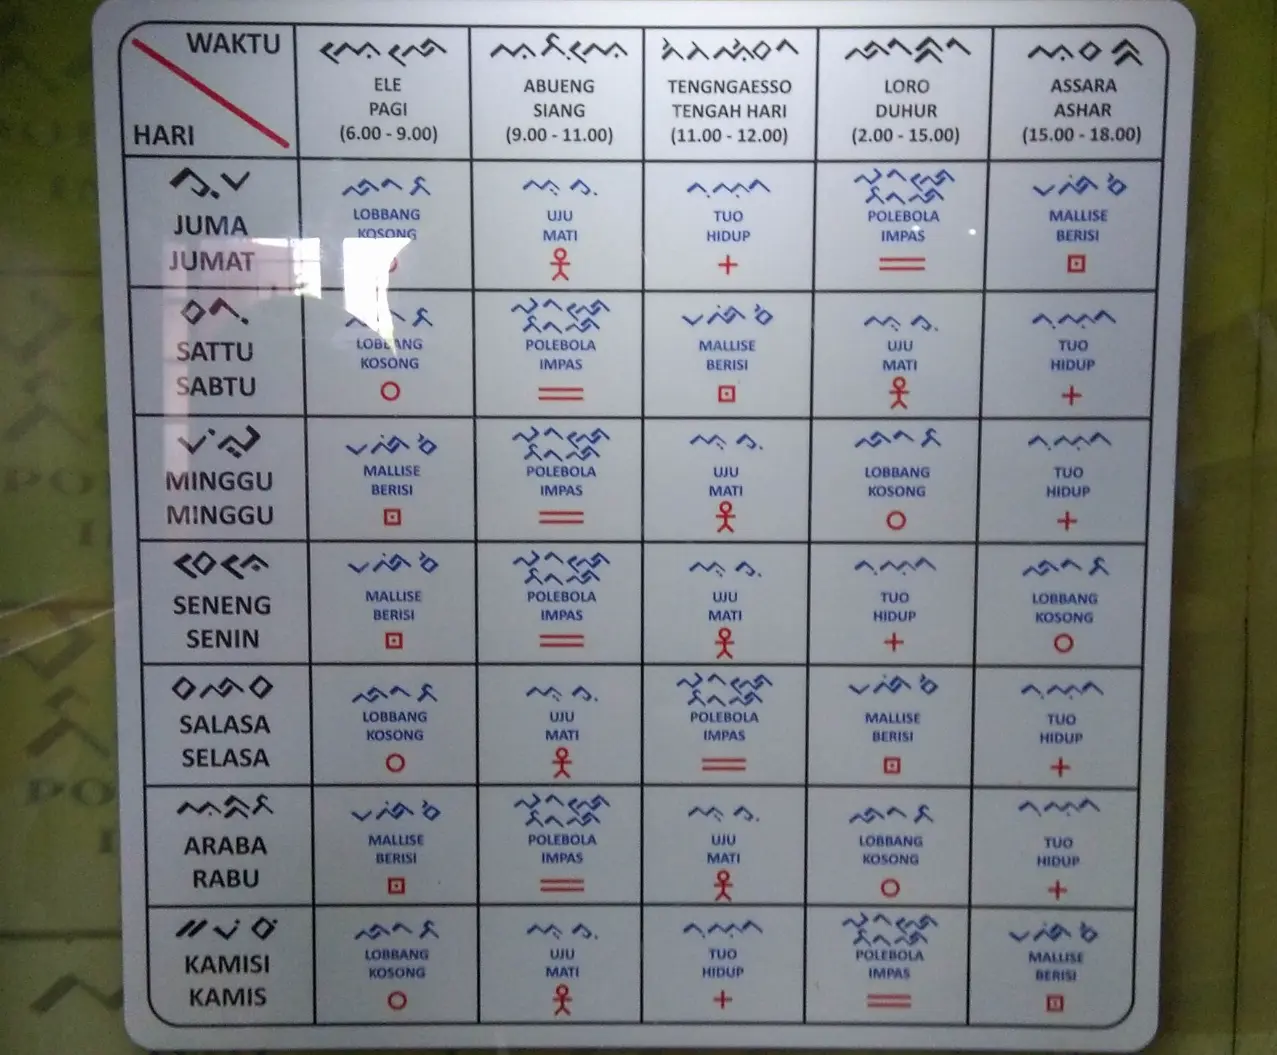 WAKTU
HARI
ᨕᨙᨒᨙ
ELE
PAGI
(6.00 - 9.00)
ABUENG
SIANG
(9.00 - 11.00)
TENGNGAESSO
TENGAH HARI
(11.00 - 12.00)
ᨒᨚᨑᨚ
LORO
DUHUR
(2.00 - 15.00)
ᨕᨔᨑ
ASSARA
ASHAR
(15.00 - 18.00)
ᨍᨘᨆ
JUMA
JUMAT
ᨒᨚᨅ
LOBBANG
KOSONG
ᨕᨘᨍᨘ
UJU
MATI
ᨈᨘᨕᨚ
TUO
HIDUP
POLEBOLA
IMPAS
ᨆᨒᨗᨔᨗ
MALLISE
BERISI
ᨔᨈᨘ
SATTU
SABTU
ᨒᨚᨅ
LOBBANG
KOSONG
POLEBOLA
IMPAS
ᨆᨒᨗᨔᨗ
MALLISE
BERISI
ᨕᨘᨍᨘ
UJU
MATI
ᨈᨘᨕᨚ
TUO
HIDUP
ᨆᨗᨁᨘ
MINGGU
MINGGU
ᨆᨒᨗᨔᨗ
MALLISE
BERISI
POLEBOLA
IMPAS
ᨕᨘᨍᨘ
UJU
MATI
ᨒᨚᨅ
LOBBANG
KOSONG
ᨈᨘᨕᨚ
TUO
HIDUP
ᨔᨙᨊᨙ
SENENG
SENIN
ᨆᨒᨗᨔᨗ
MALLISE
BERISI
POLEBOLA
IMPAS
ᨕᨘᨍᨘ
UJU
MATI
ᨈᨘᨕᨚ
TUO
HIDUP
ᨒᨚᨅ
LOBBANG
KOSONG
ᨔᨒᨔ
SALASA
SELASA
ᨒᨚᨅ
LOBBANG
KOSONG
ᨕᨘᨍᨘ
UJU
MATI
POLEBOLA
IMPAS
ᨆᨒᨗᨔᨗ
MALLISE
BERISI
ᨈᨘᨕᨚ
TUO
HIDUP
ᨕᨑᨅ
ARABA
RABU
ᨆᨒᨗᨔᨗ
MALLISE
BERISI
POLEBOLA
IMPAS
ᨕᨘᨍᨘ
UJU
MATI
ᨒᨚᨅ
LOBBANG
KOSONG
ᨈᨘᨕᨚ
TUO
HIDUP
ᨀᨆᨗᨔᨗ
KAMISI
KAMIS
ᨒᨚᨅ
LOBBANG
KOSONG
ᨕᨘᨍᨘ
UJU
MATI
ᨈᨘᨕᨚ
TUO
HIDUP
POLEBOLA
IMPAS
ᨆᨒᨗᨔᨗ
MALLISE
BERISI